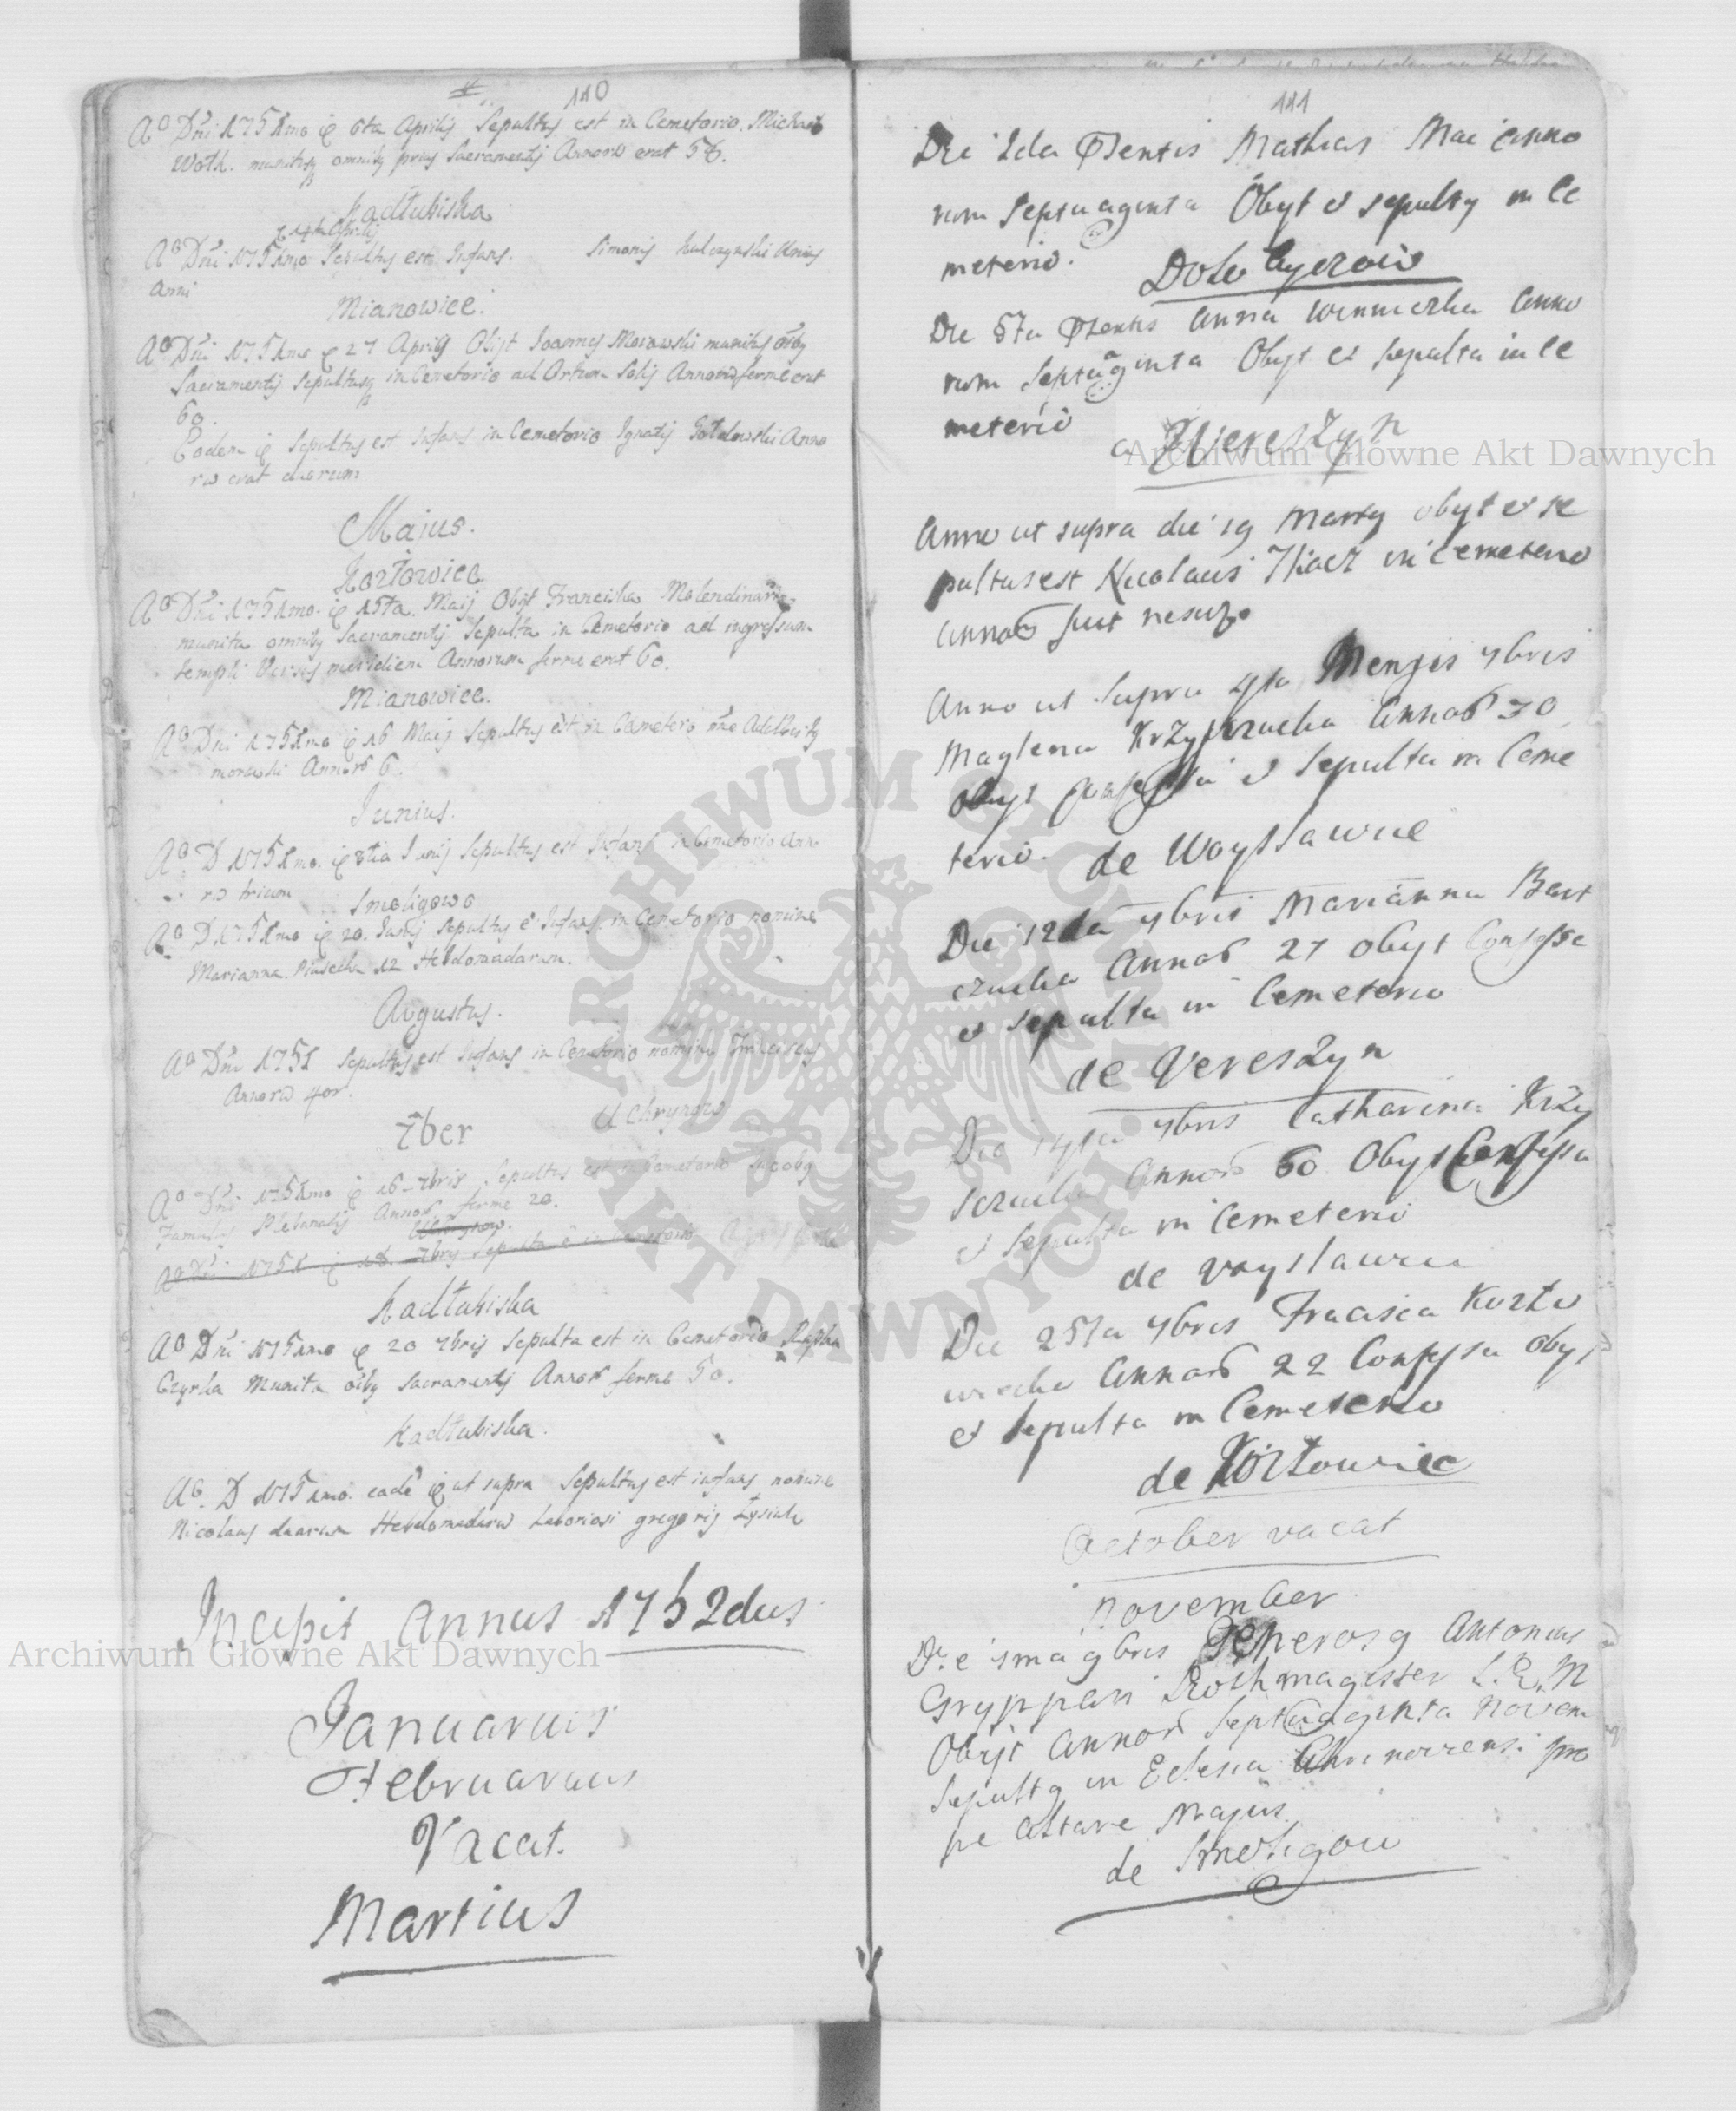 110
Aº Dñi 1751mo ę 6ta Aprilis Sepultus est in Cemetorio. Michael
Woth. munitusq omnibq prius Sacramentij Annorũ erat 58.
Kadłubiska
ę 14ta Aprilij
Aº Dñi 1751mo Sepultus est Infans. Simonis Kulczynski Unius
Anni
Mianowice.
Aº Dñi 1751mo ę 27 Aprilis Obijt Joannes Morawski munitus õibq
Sacramentij Sepultusq in Cemetorio ad Ortum Solis Annorũ ferme erat
60.
Eodem ę Sepultus est Infans in Cemetorio Ignatij Anno
rũ erat duorum
Majus.
Kozłowiec
Aº Dñi 1751mo. ę 15ta. Maij Obijt Franciska Molendinaria
munita omnibq Sacramentij Sepulta in Cemetorio ad ingressum
templi Versus meridiem Annorum ferme erat 60.
Mianowice.
Aº Dñi 1751mo ę 16 Maij Sepultus est in Cemeterio Adalbertq
morawski Annorũ 6.
Junius.
Aº D 1751mo. ę Junij Sepultus est Infans in Cemetorio Anno
rũ trium
Smoligowo
Aº D 1751mo ę 20. Junij Sepultus ẽ Infans in Cemetorio nomine
Marianna. Piasecka 12 Hebdomadarum.
Augustus.
Aº Dñi 1751 Sepultus est Infans in Cemetorio nomine Franciscus
Annorũ 4or.
7ber
Uchrynow
Aº Dñi 1751mo ę 16 7bris Sepultus est in Cemetorio Jacobq
Famulus Plebanalis Annorũ ferme 20.
Aº Dñi 1751 ę 18. 7bris Sepulta ẽ in Cemetorio
Kadłubiska
Aº Dñi 1751mo ę 20 7bris Sepulta est in Cemetorio
Czyrka Munita õibq Sacramentij Annorũ ferme 50.
Kadłubiska.
Aº. D 1751mo. eadẽ ę ut supra Sepultus est infans nomine
Nicolaus duarum Hebdomadarũ Laboriosi gregorij Łysiak
Incepit Annus 1752dus
Januarius
Februarius
Vacat.
Martius
111
Die 2da Mathias Mai Anno
rum Septuaginta Obyt et sepultq in Ce
meterio.
Doło byczow
Die 5ta Anna Winniczka Anno
rum Septuaginta Obyt et Sepulta in Ce
meterio
a Wereszyn
Anno ut supra die 19 Martij obyt et se
pultus est Nicolaus Tkacz in Cemeterio
annorũ fuit
Anno ut Supra 4ta Mensis 7bris
Maglena Krzyszczucha Annorũ 30
Obyt et Sepulta in Ceme
terio.
de Woysławice
Die 12da 7bris Marianna Bart
czucha Annorũ 27 obyt Confessa
et sepulta in Cemeterio
de Vereszyn
Die 14ta 7bris Catharina Krzy
szczucha Annorũ 60 Obyt Confessa
et Sepulta in Cemeterio
de Voysławice
Die 25ta 7bris Fracisca Kozło
wiecka Annorũ 22 Confessa obyt
et Sepulta in Cemeterio
de Kozłowiec
October vacat
November
Die 1ma 9bris Generosq Antonius
Gryppari Rothmagister S. R. M
Obijt Annorũ Septuaginta Novem
Sepultq in Eclesia Uhrinoviensi pro
pe Altare Majus.
de Smoligow
Archiwum Główne Akt Dawnych
Archiwum Główne Akt Dawnych
ARCHIWUM GŁÓWNE AKT DAWNYCH